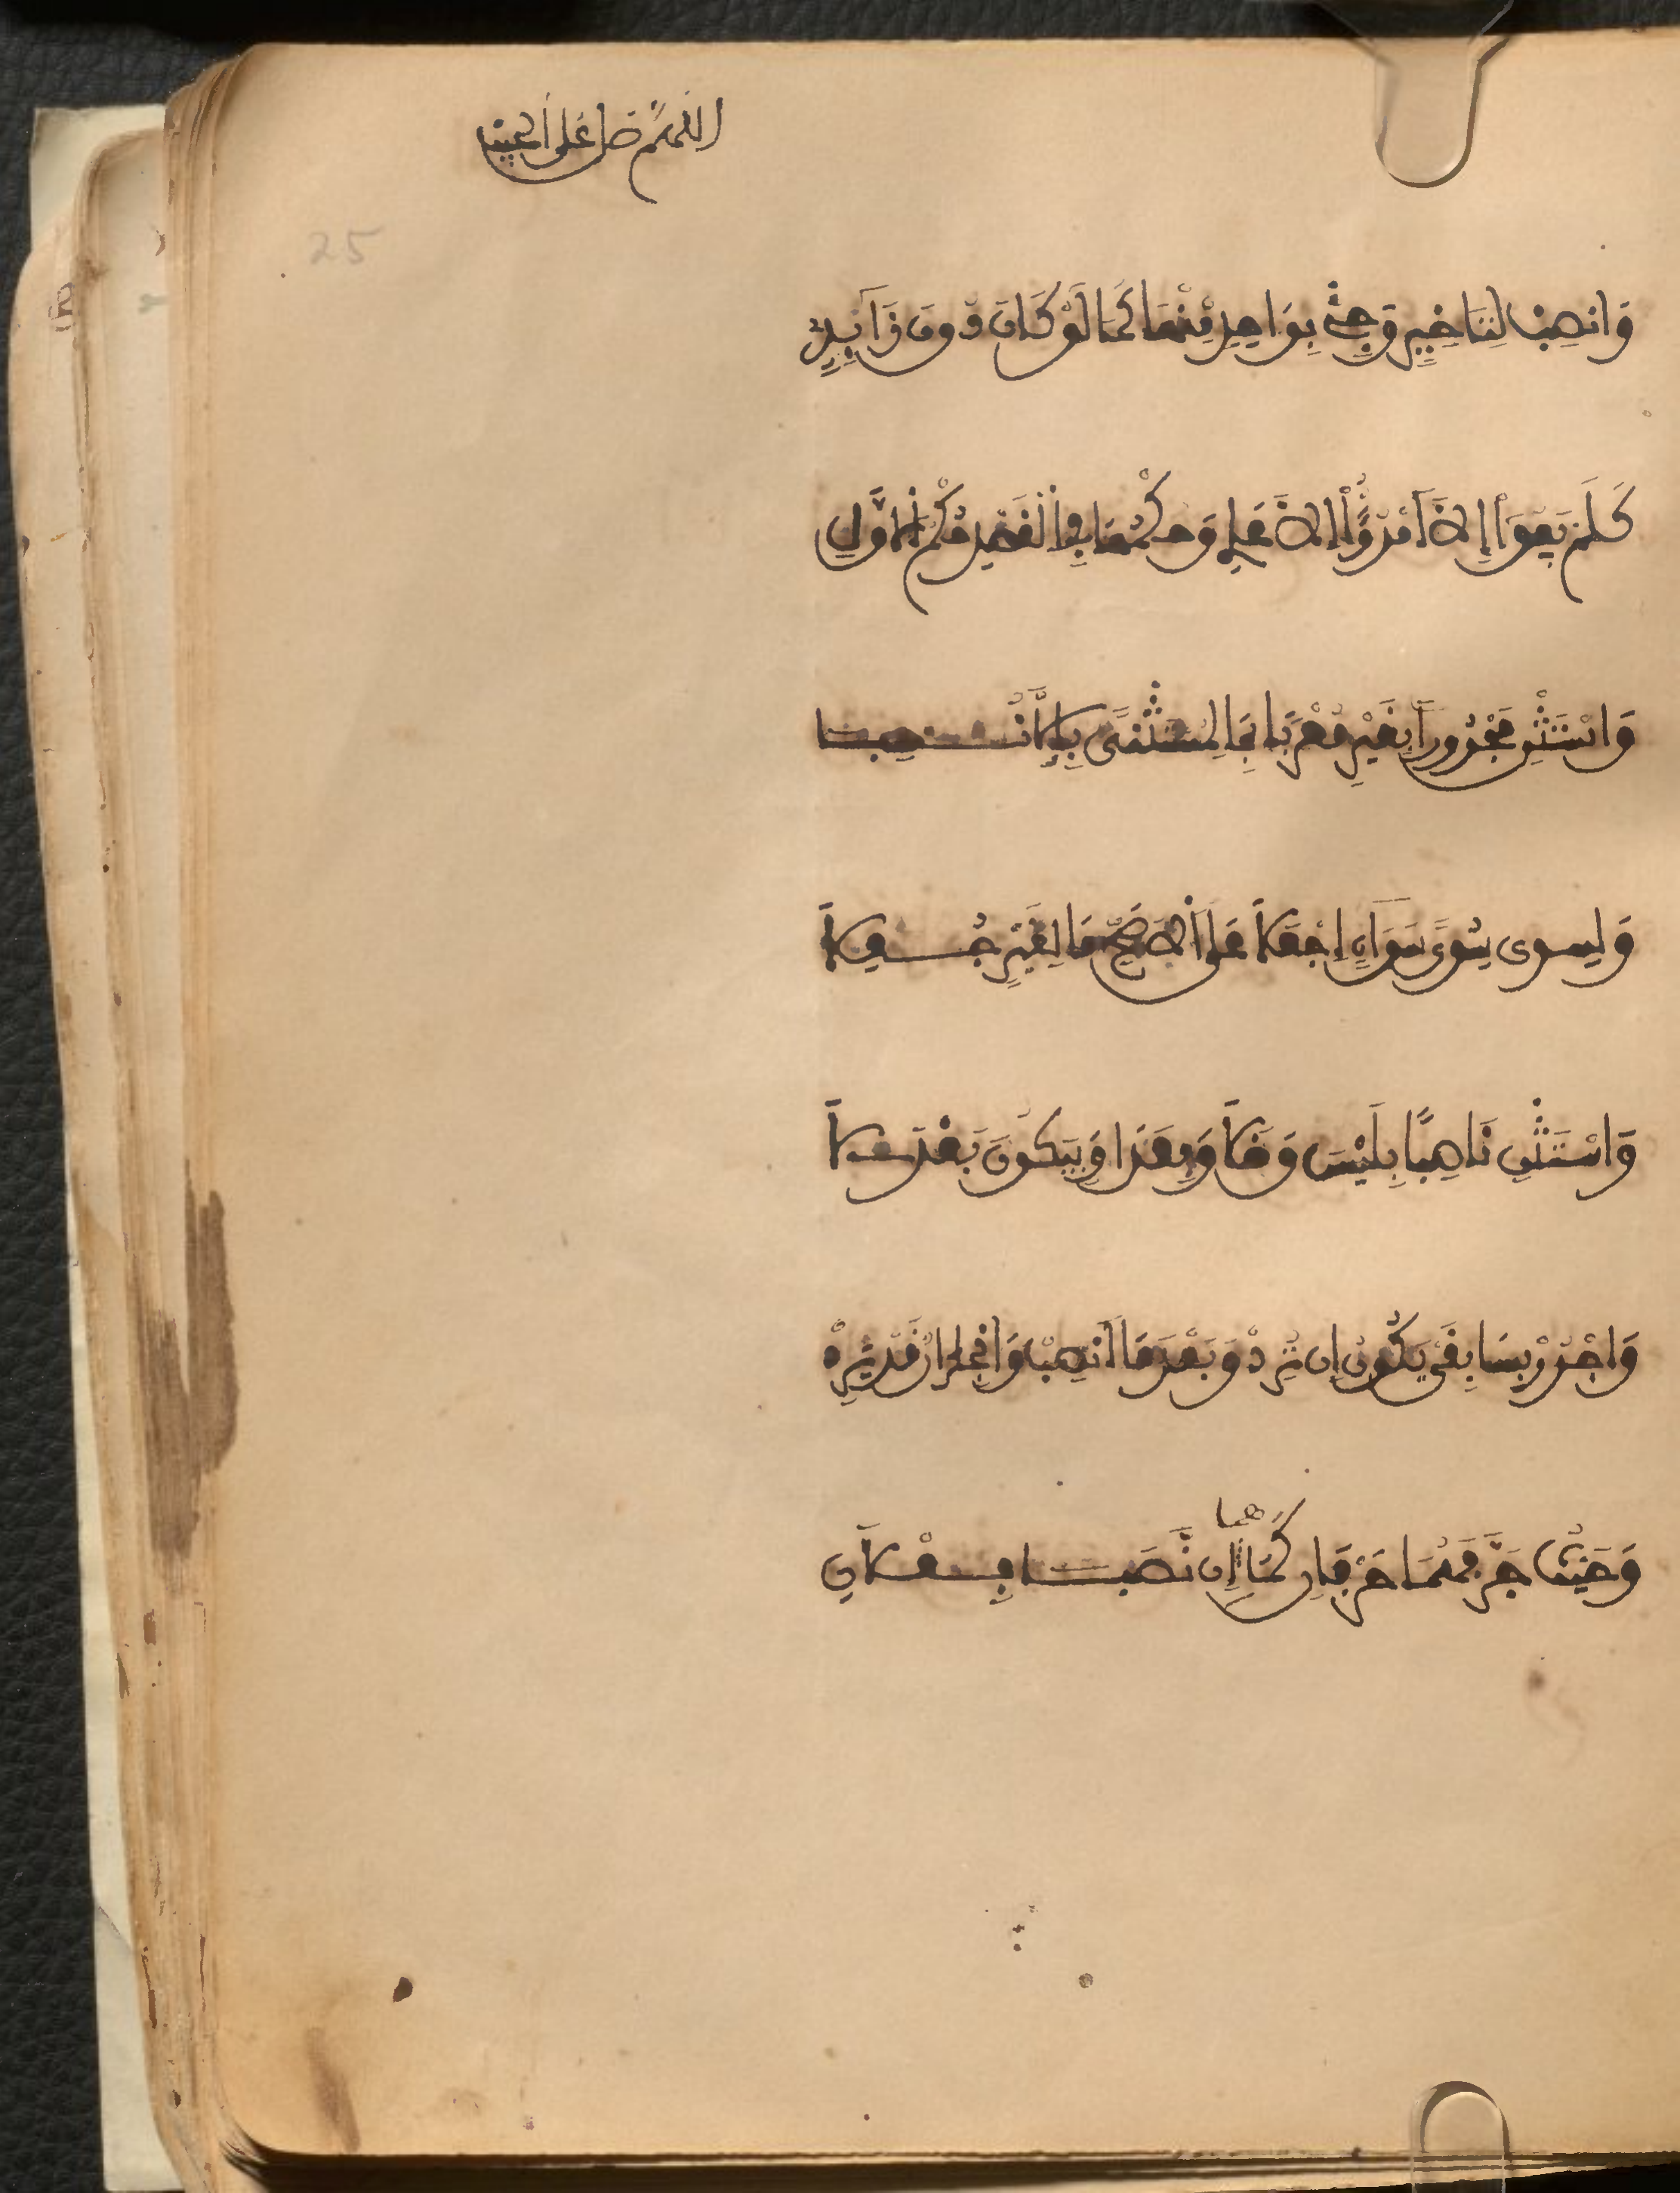 اللهم صل على نبينا
25
وَانصِبْ لِتَاخِيرٍ وَجِئْ بِوَاحِدِ مِنْهَا كَمَا لَوْ كَانَ دُونَ زَآئِدِ
كَلَمْ يَفُوا إِلاَّ امْرُؤٌ إِلاَّ عَلِي وَحُكْمُهَا فِي الْقَصْدِ حُكْمُ الاَوَّلِ
وَاسْتَثْنِ مَجْرُوراً بِغَيْرٍ مُعْرَبَا بِمَا لِمُسْتَثْنًى بِإِلاَّ نُسِبَا
وَلِسِوى سُوًى سَوَاءٍ اجْعَلاَ عَلَى الاَصَحِّ مَا لِغَيْرٍ جُعِلاَ
وَاسْتَثْنِ نَاصِبًا بِلَيْسَ وَخَلاَ وَبِعَدَا وَبِيَكُونُ بَعْدَ لاَ
وَاجْرُرْ بِسَابِقَيْ يَكُونُ إِن تُرِدْ وَبَعْدَ مَا انصِبْ وَانْجِرَارٌ قَدْ يَرِدْ
وَحَيْثُ جَرَّا فَهُمَا حَرْفَانِ كَمَا هما إِن نَّصَبَا فِعْلاَنِ